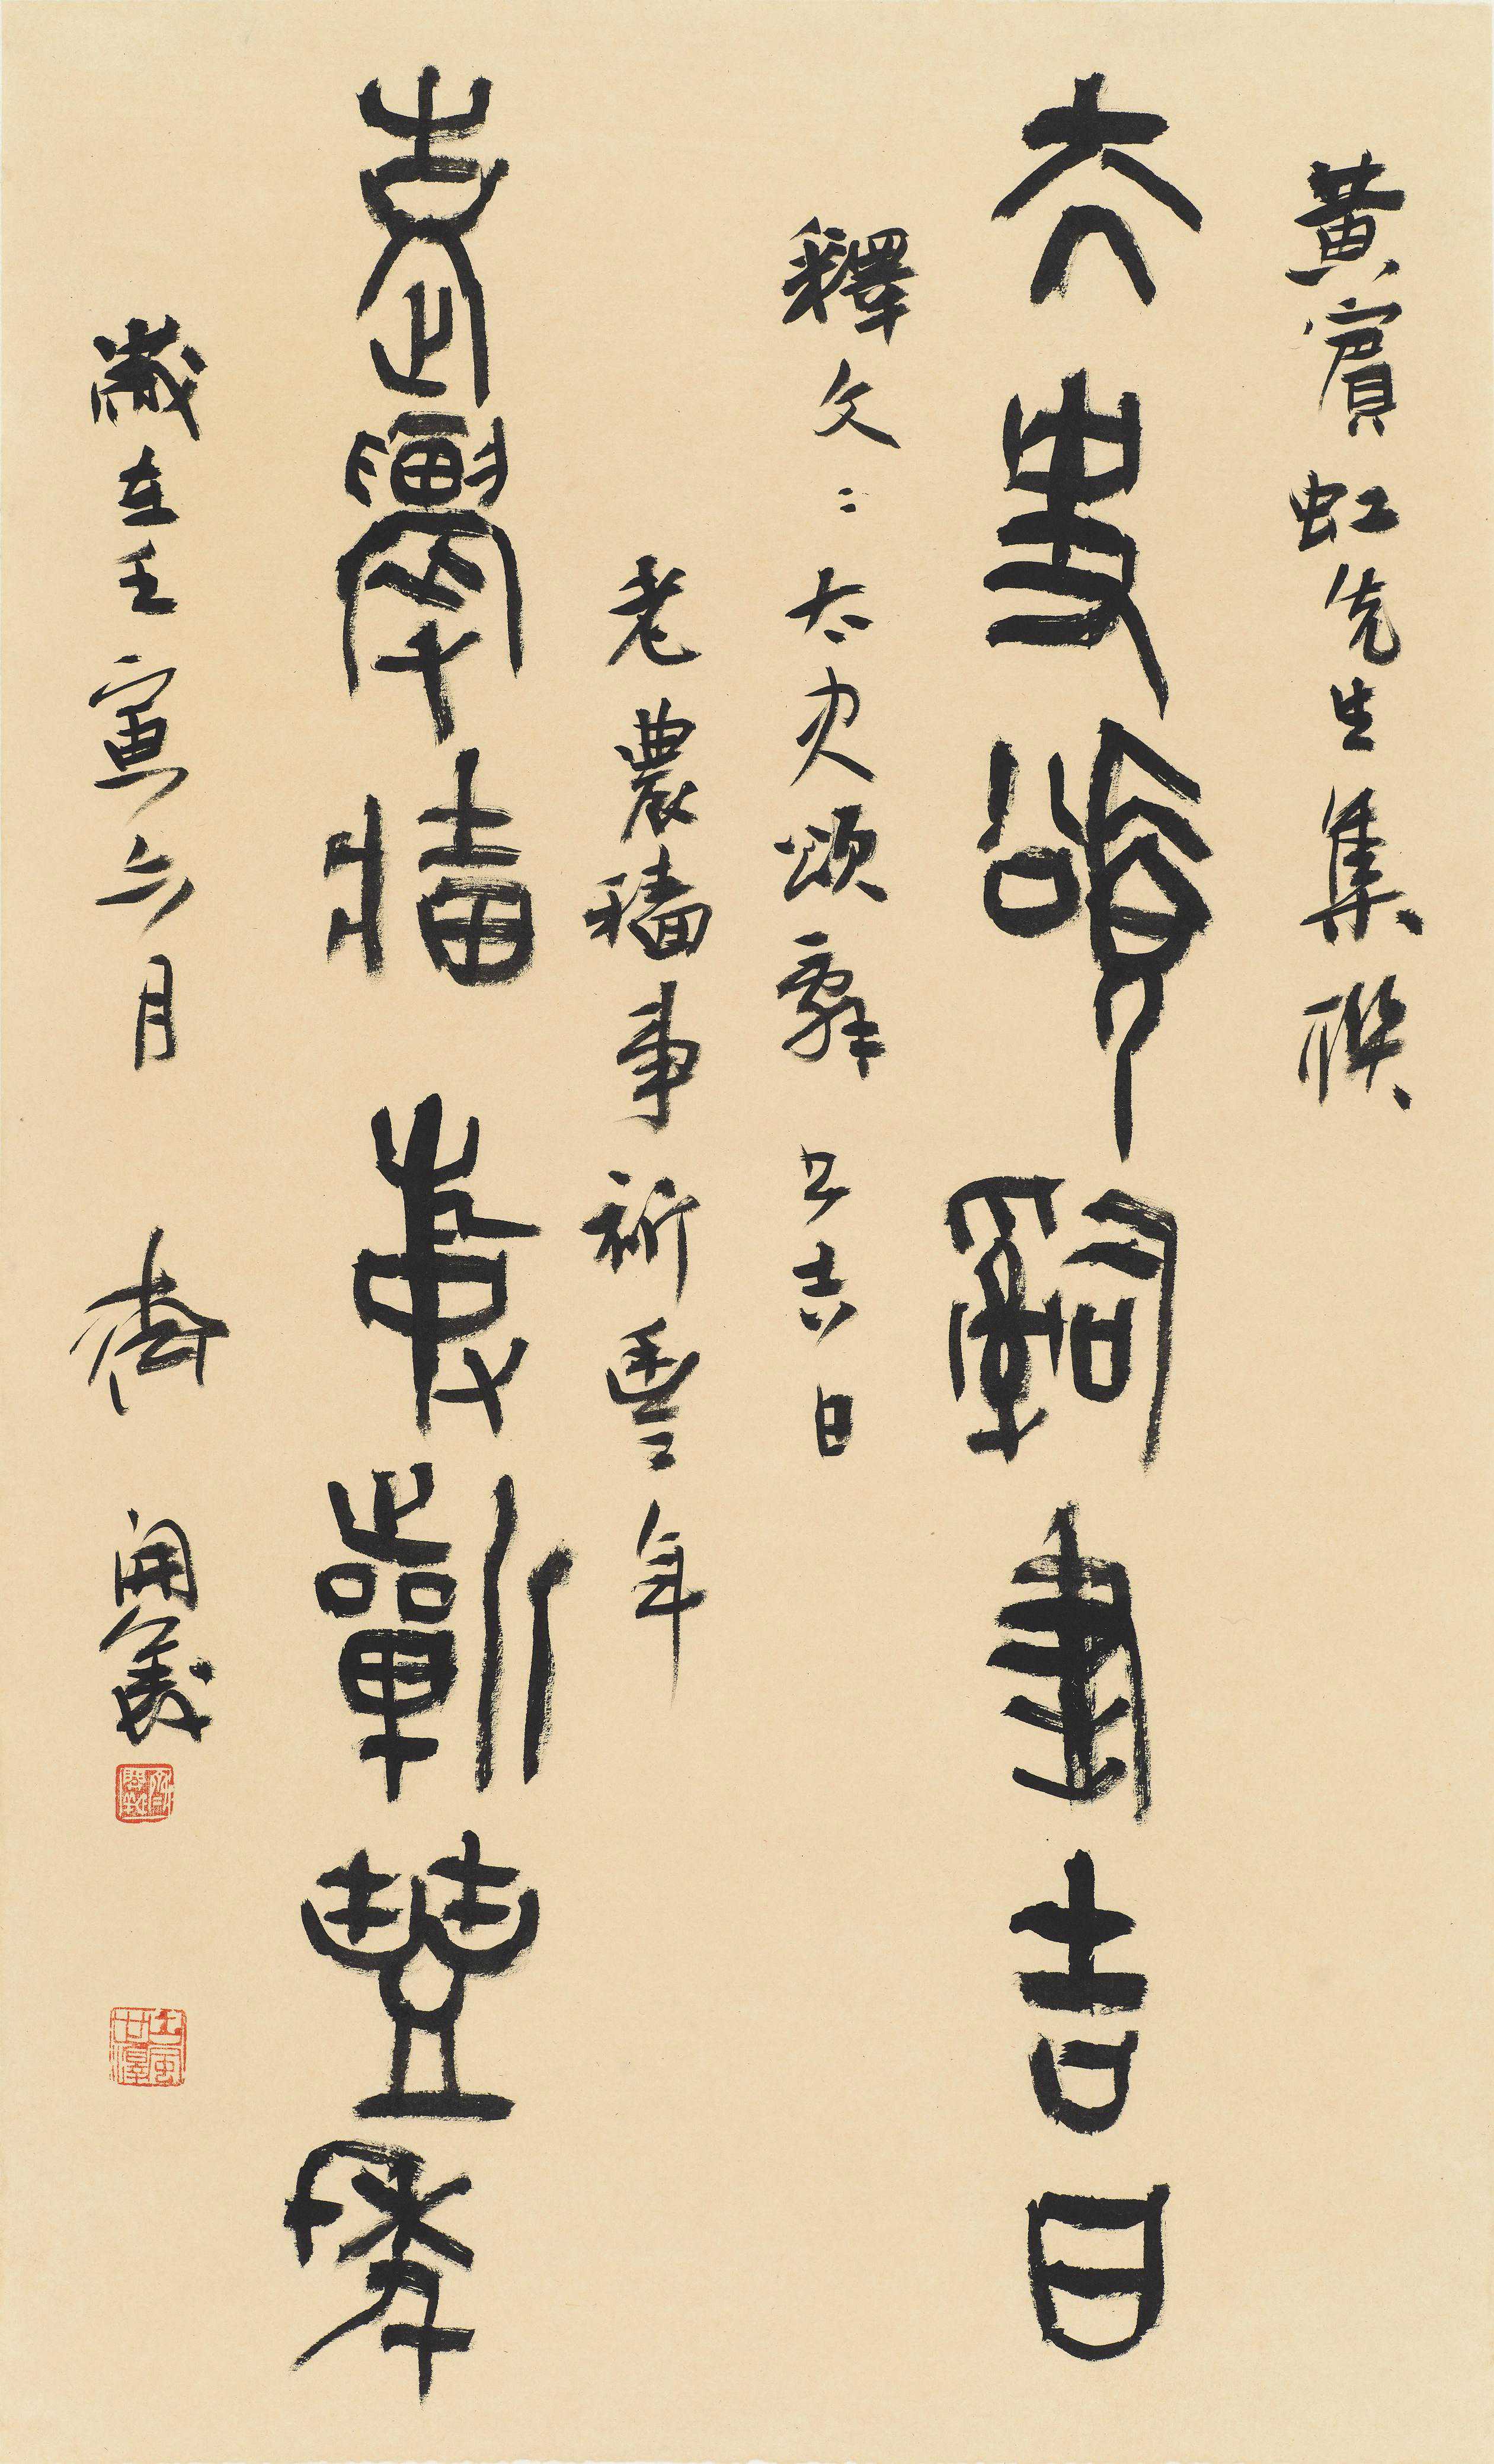 黃賓虹先生集聯
大史頌辭書吉日
釋文：太史頌辭書吉日
老農穡事祈豐年
老農穡事祈豐年
歲在壬寅六月 齊開義